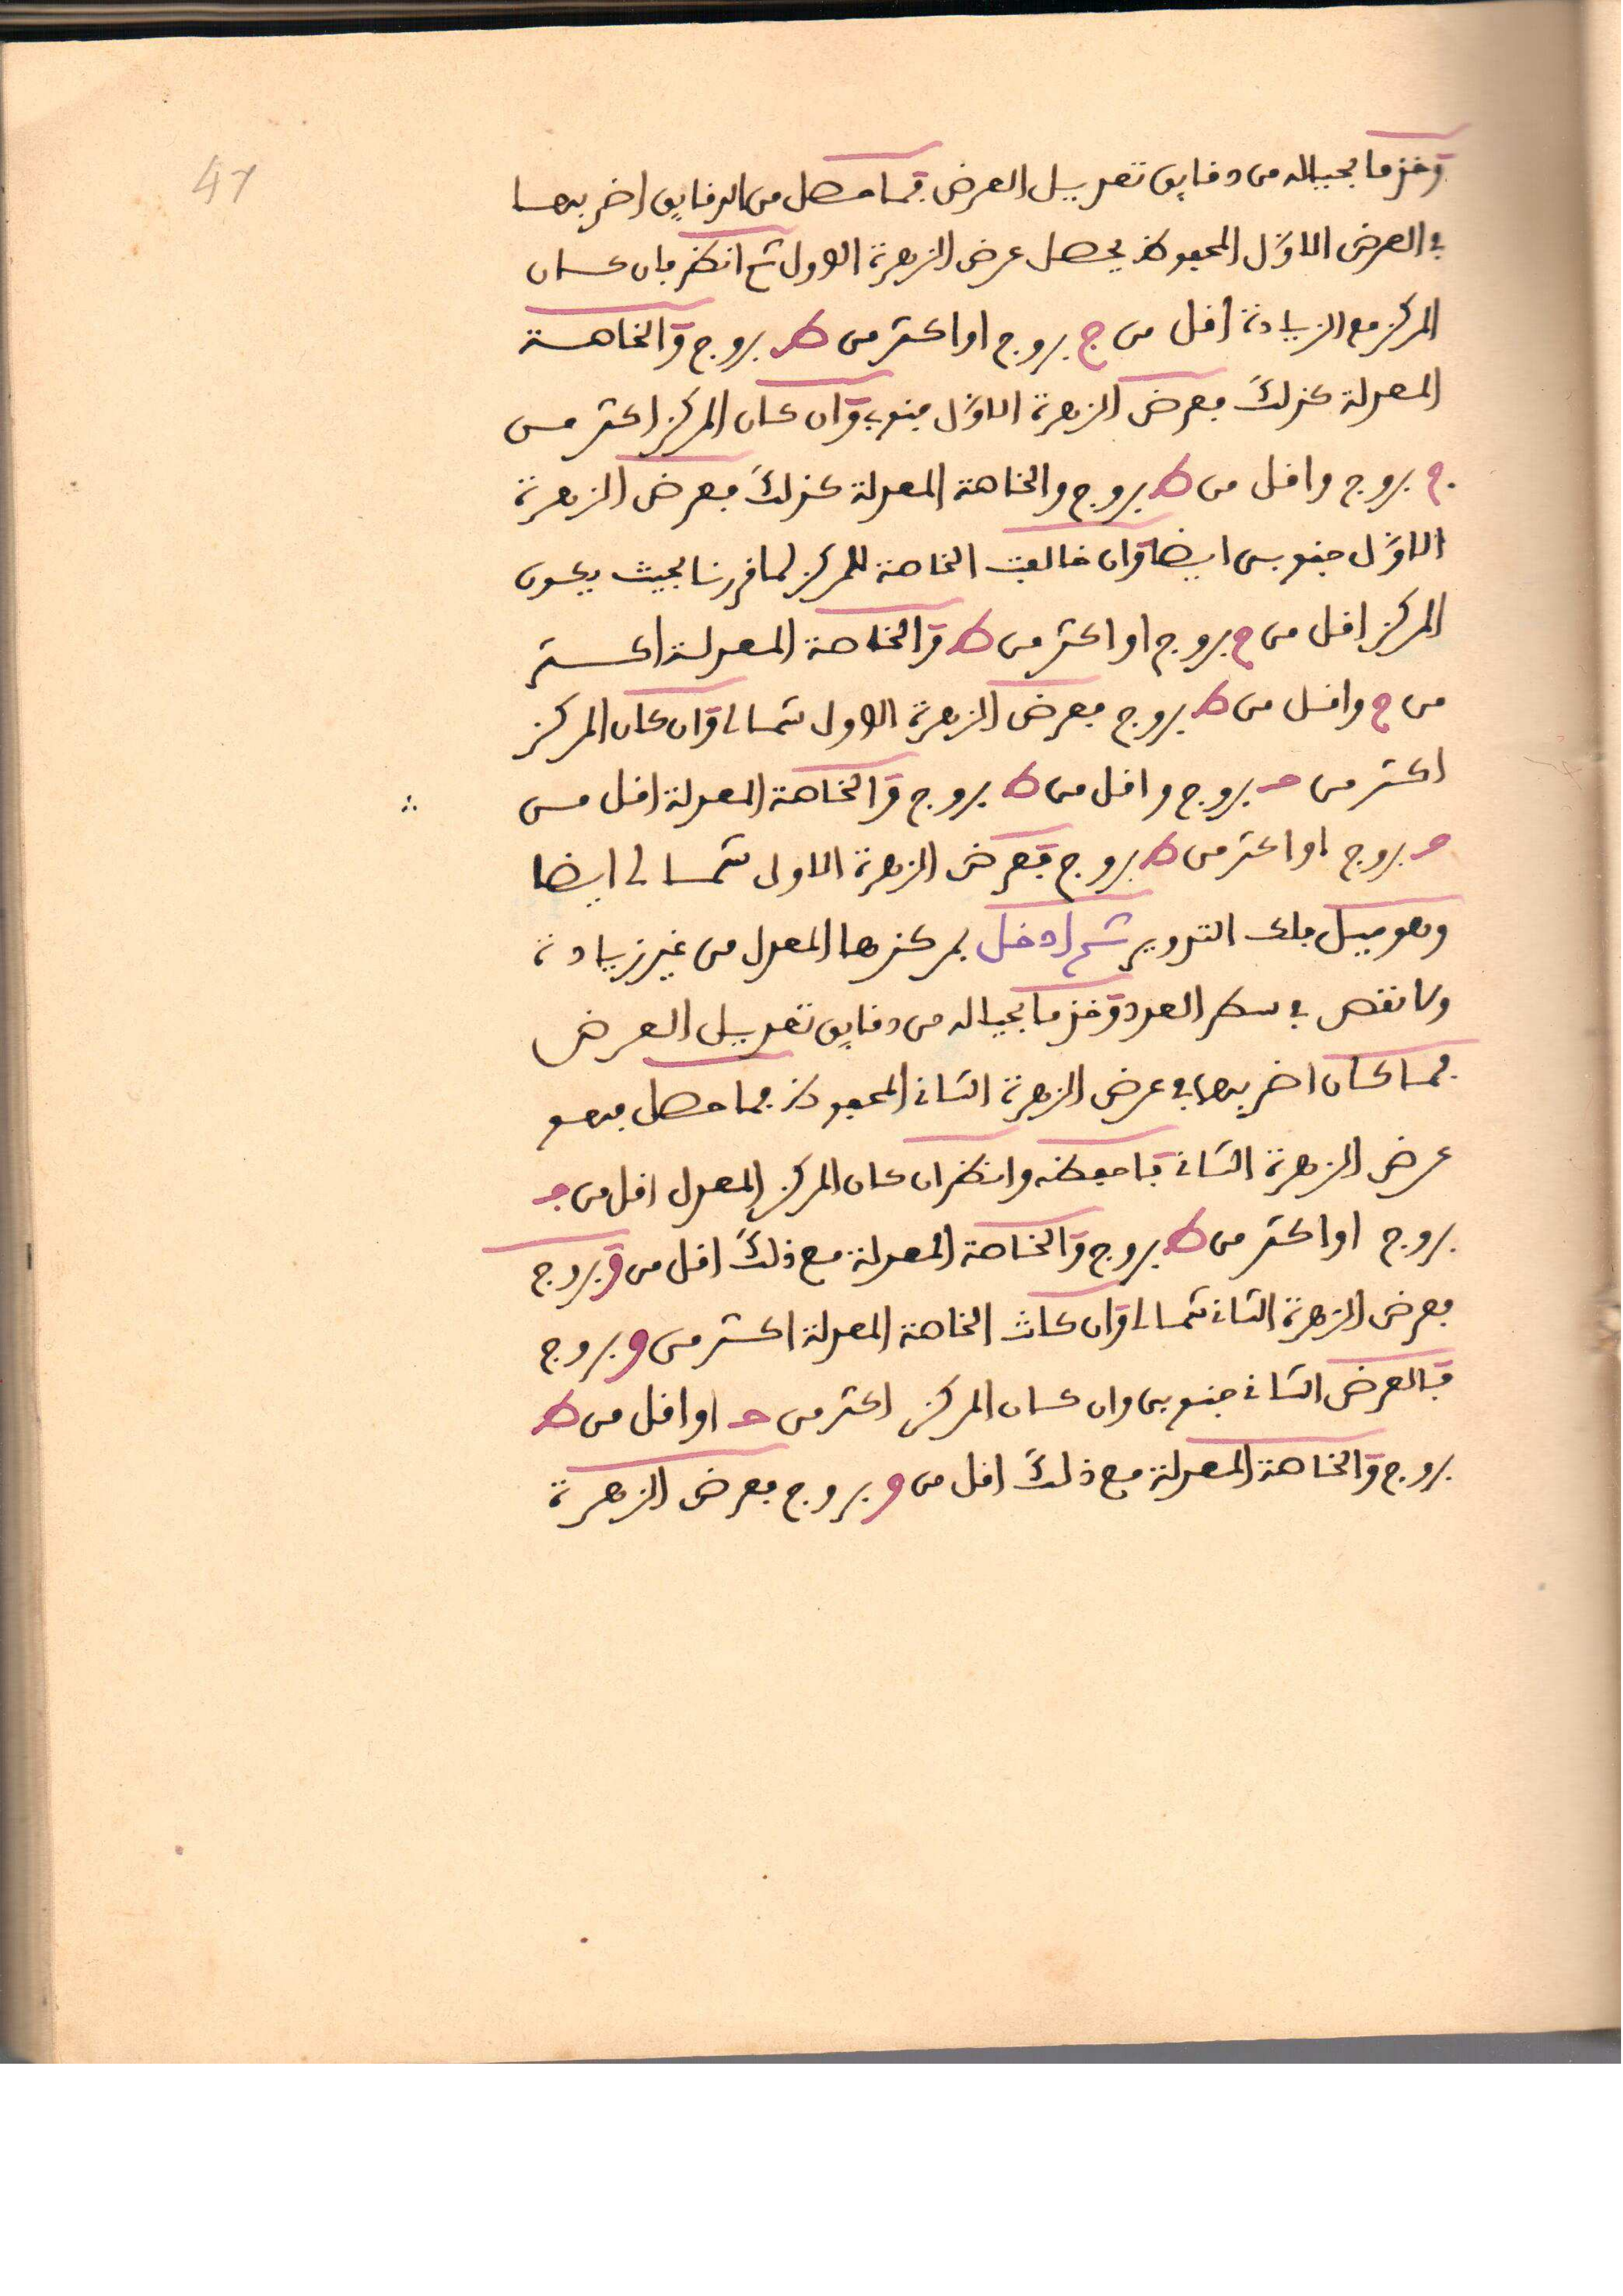 47
وخذ ما بحياله من دقايق تعديل العرض فما حصل من الدقايق اضربها
في العرض الاوّل المحفوظ يحصل عرض الزهرة الاول ثم انظر فان كان
المركز مع الزيادة اقل من ج بروج او اكثر من ط بروج والخاصة
المعدلة كذلك فعرض الزهرة الاوّل جنوبي وان كان المركز اكثر من
ج بروج واقل من ط بروج والخاصة المعدلة كذلك فعرض الزهرة
الاوّل جنوبي ايضا وان خالفت الخاصة للمركز لما قررنا بحيث يكون
المركز اقل من ج بروج او اكثر من ط والخاصة المعدلة اكثر
من ج واقل من ط بروج فعرض الزهرة الاول شمالي وان كان المركز
اكثر من ج بروج واقل من ط بروج والخاصة المعدلة اقل من
ج بروج او اكثر من ط بروج فعرض الزهرة الاول شمالي ايضا
وهو ميل فلك التدوير ثم ادخل بمركزها المعدل من غير زيادة
ولا نقص في سطر العدد وخذ ما بحياله من دقايق تعديل العرض
فما كان اضربها في عرض الزهرة الثاني المحفوظ فما حصل فهو
عرض الزهرة الثاني فاحفظه وانظر ان كان المركز المعدل اقل من ج
بروج او اكثر من ط بروج والخاصة المعدلة مع ذلك اقل من و بروج
فعرض الزهرة الثاني شمالي وان كانت الخاصة المعدلة اكثر من و بروج
فالعرض الثاني جنوبي وان كان المركز اكثر من ج او اقل من ط
بروج والخاصة المعدلة مع ذلك اقل من و بروج فعرض الزهرة